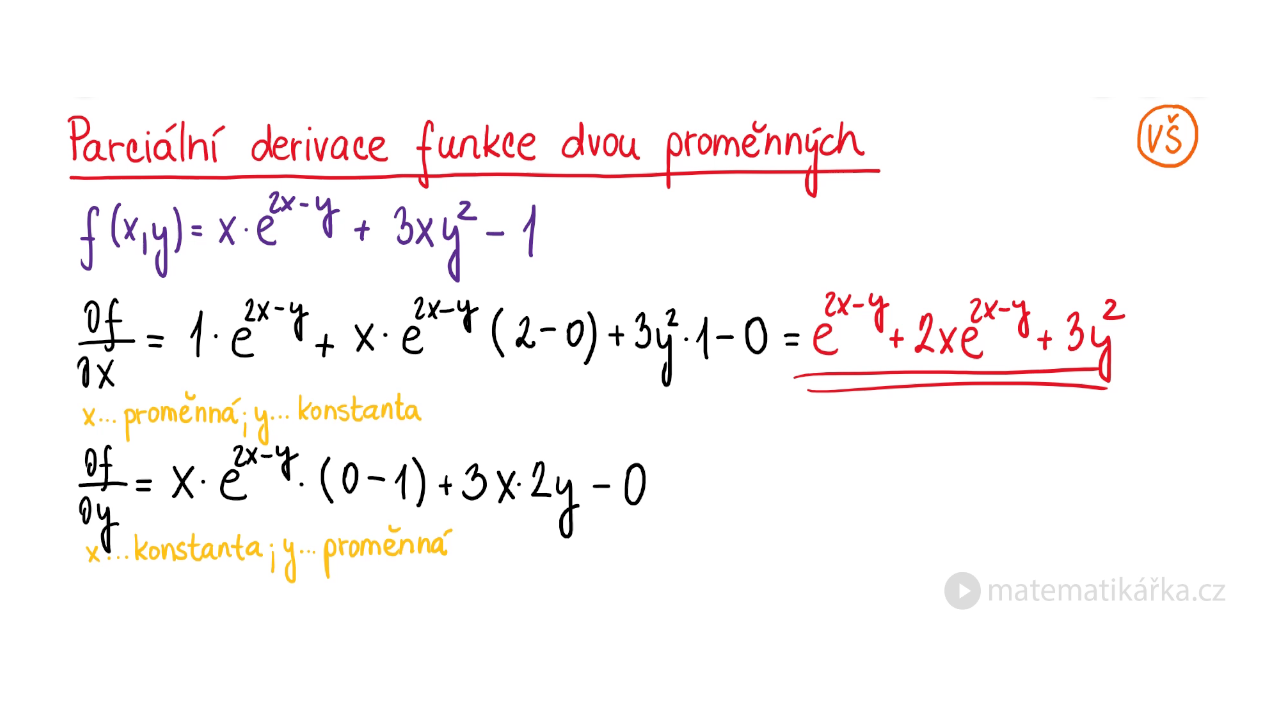 Parciální derivace funkce dvou proměnných
VŠ
f(x,y) = x · e^{2x-y} + 3xy² - 1
∂f/∂x = 1 · e^{2x-y} + x · e^{2x-y} (2-0) + 3y² · 1 - 0 = e^{2x-y} + 2xe^{2x-y} + 3y²
x... proměnná; y... konstanta
∂f/∂y = x · e^{2x-y} · (0-1) + 3x · 2y - 0
x... konstanta; y... proměnná
matematikářka.cz